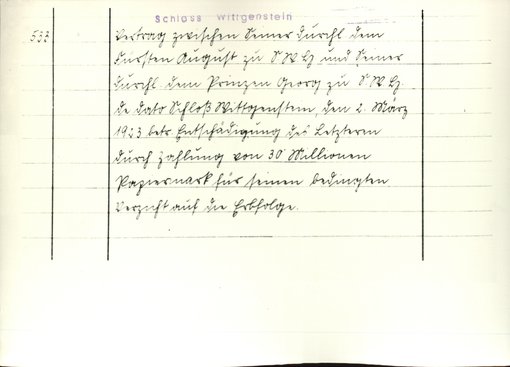 Schloss Wittgenstein
532 Vertrag zwischen Seiner Durchl. dem
Fürsten August zu S W H und Seiner
Durchl. dem Prinzen Georg zu S. W. H.
de dato Schloß Wittgenstein, den 2. März
1923 betr. Entschädigung des Letzteren
durch Zahlung von 30 Millionen
Papiermark für seinen bedingten
Verzicht auf die Erbfolge.